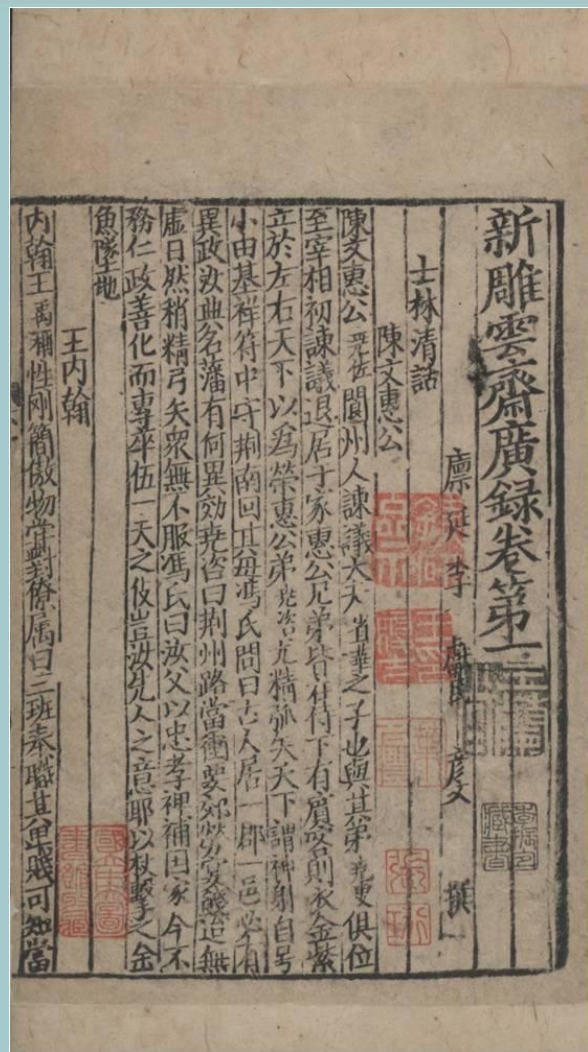 新雕雲齋廣録卷第一
廪延李 獻民 彦文 撰
士林清話
陳文惠公
陳文惠公堯佐閬州人諫議大夫省華之子也與其弟堯叟俱位
至宰相初諫議退居于家惠公兄弟皆侍下有賔客則衣金紫
立於左右天下以為榮惠公弟堯咨尤精弧矢天下謂神射自号
小由基祥符中守荆南回其母馮氏問曰古人居一郡一邑必有
異政汝典名藩有何異効堯咨曰荆州路當衝要郊勞宴餞迨無
虚日然稍精弓矢衆無不服馮氏曰汝父以忠孝裨補国家今不
務仁政善化而專卒伍一夫之伎豈汝先人之意耶以杖擊之金
魚墜地
王内翰
内翰王禹偁性刚簡傲物常對僚属曰三班奉職其卑賤可知當